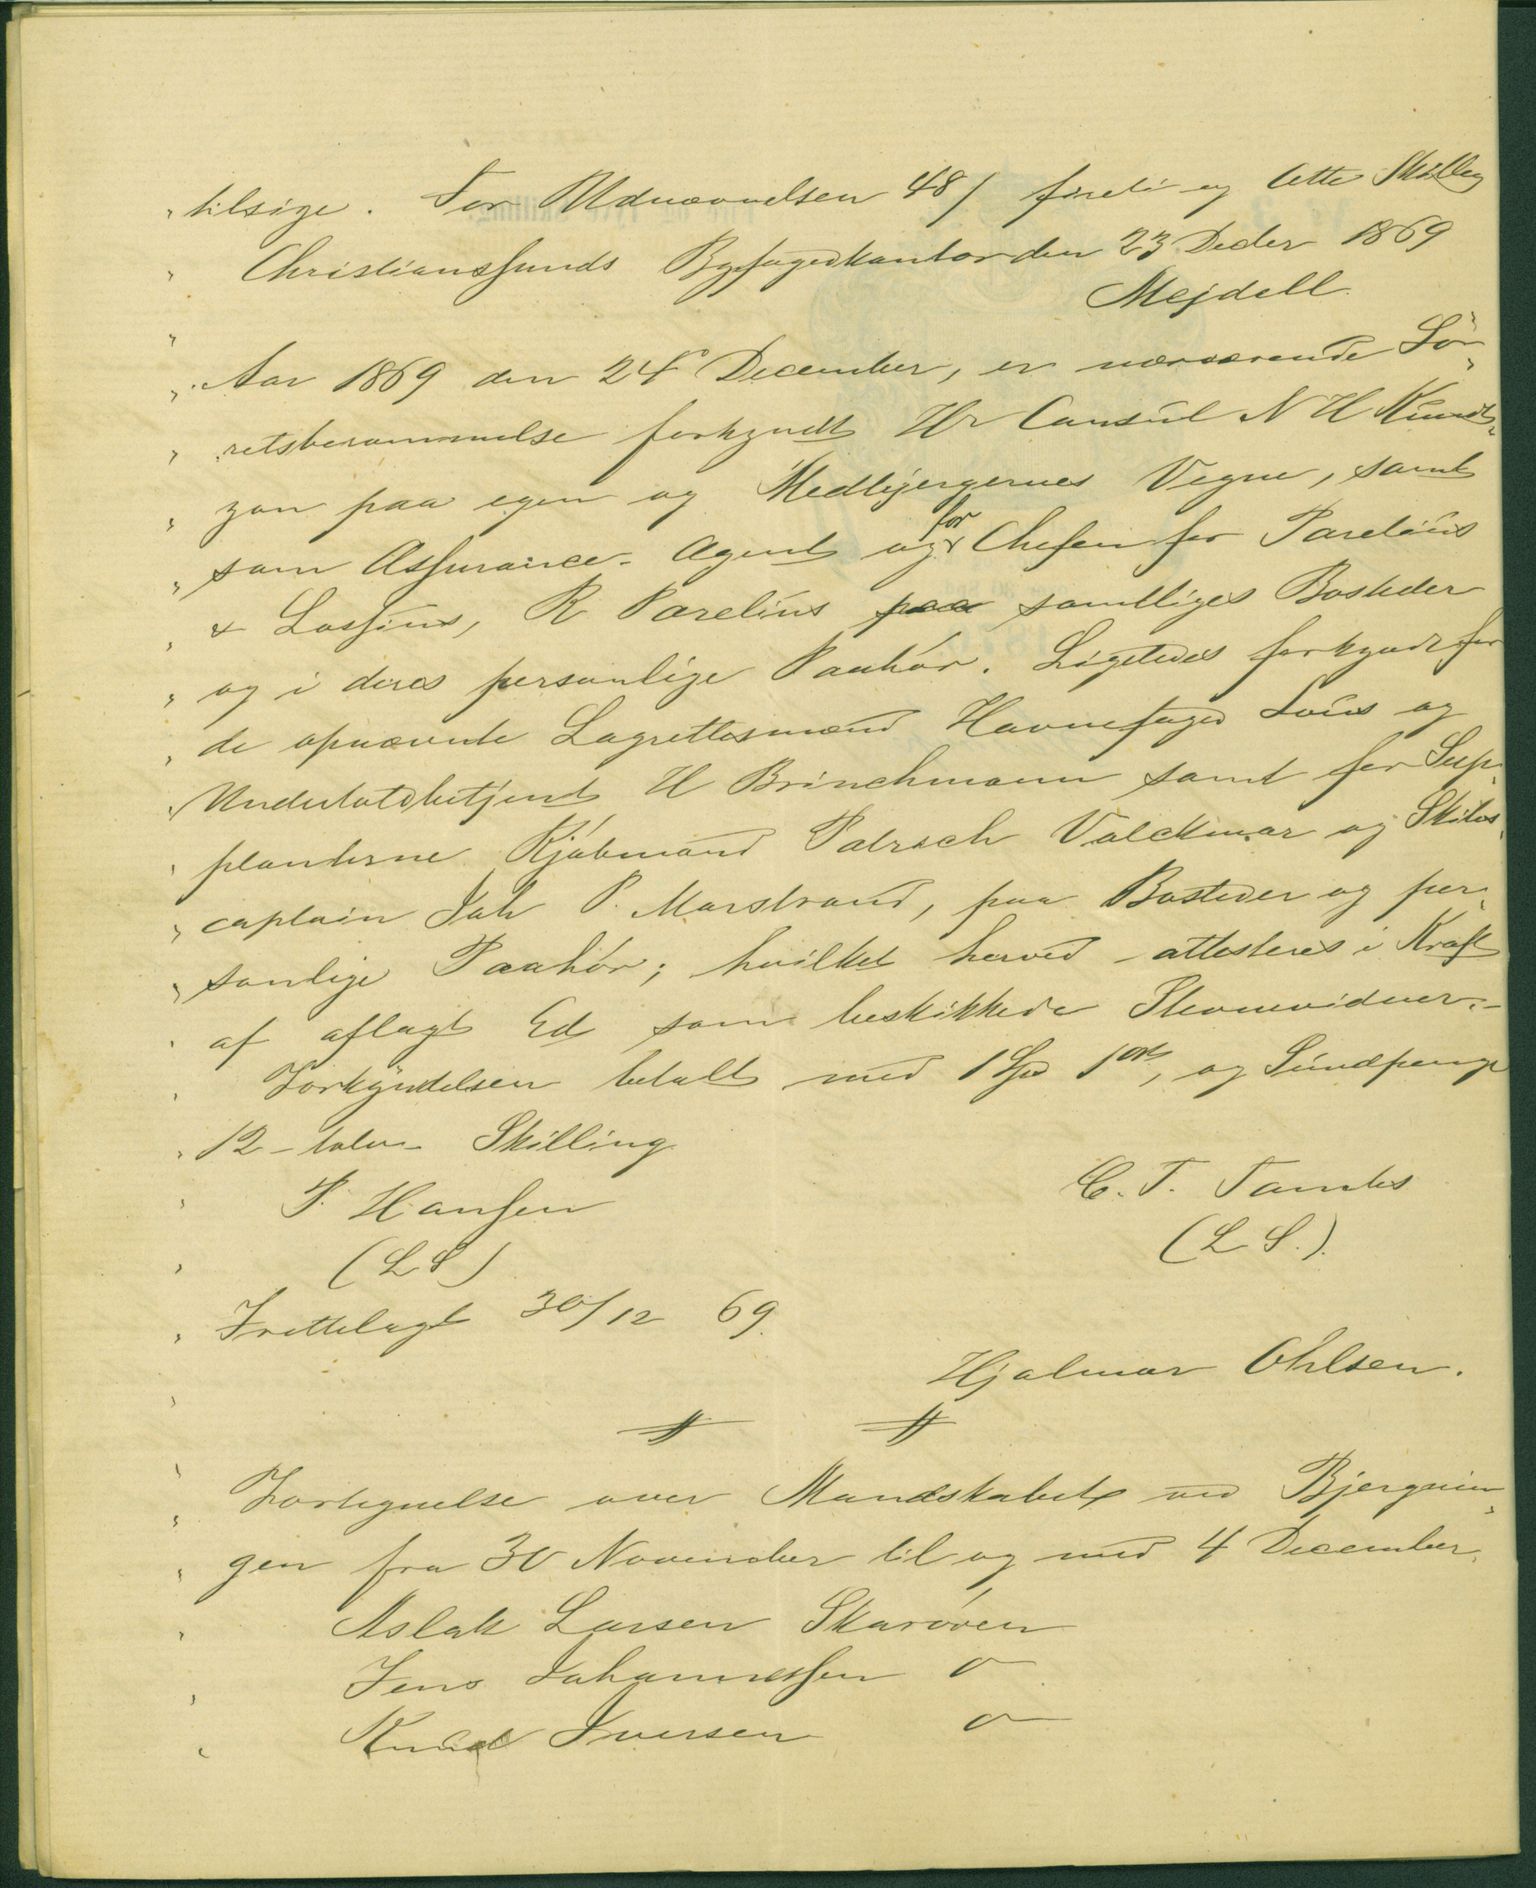 „ tilsige. For Udnævnelsen 48/ fireti og Otte Skilling
„ Christianssunds Byfogedkontor den 23 Decbr 1869
Mejdell.
„ Aar 1869 den 24de December, er nærværende Sø-
„ retsberammelse forkyndt Hr Consul N H Knudt-
„ zon paa egen og Medbjergernes Vegne, samt
„ som Assurance-Agent og for Chefen for Parelius
„ & Lossius, R Parelius paa samtliges Bosteder
„ og i deres personlige Paahør. Ligeledes forkyndt for
„ de opnævnte Lagrettesmænd Havnefoged Lous og
„ Undertoldbetjent H Brinchmann samt for Sup-
„ pleanterne Kjøbmand Patrock Volckmar og Skibs-
„ captain Joh P. Marstrand, paa Bosteder og per-
„ sonlige Paahør; hvilket herved attesteres i Kraft
„ af aflagt Ed som beskikkede Stevnevidner.-
„ Forkyndelsen betalt med 1 Spd 1 ort, og Sundpenge
„ 12 - tolv - Skilling
P. Hansen C. T. Tambs
(L S) (L S.)
„ Irettelagt 30/12 69.
Hjalmar Ohlsen.
„ Fortegnelse over Mandskabet ved Bjergnin-
„ gen fra 30 November til og med 4 December.
„ Aslak Larsen Skarøven
„ Jens Johannessen o
„ Knud Iversen o